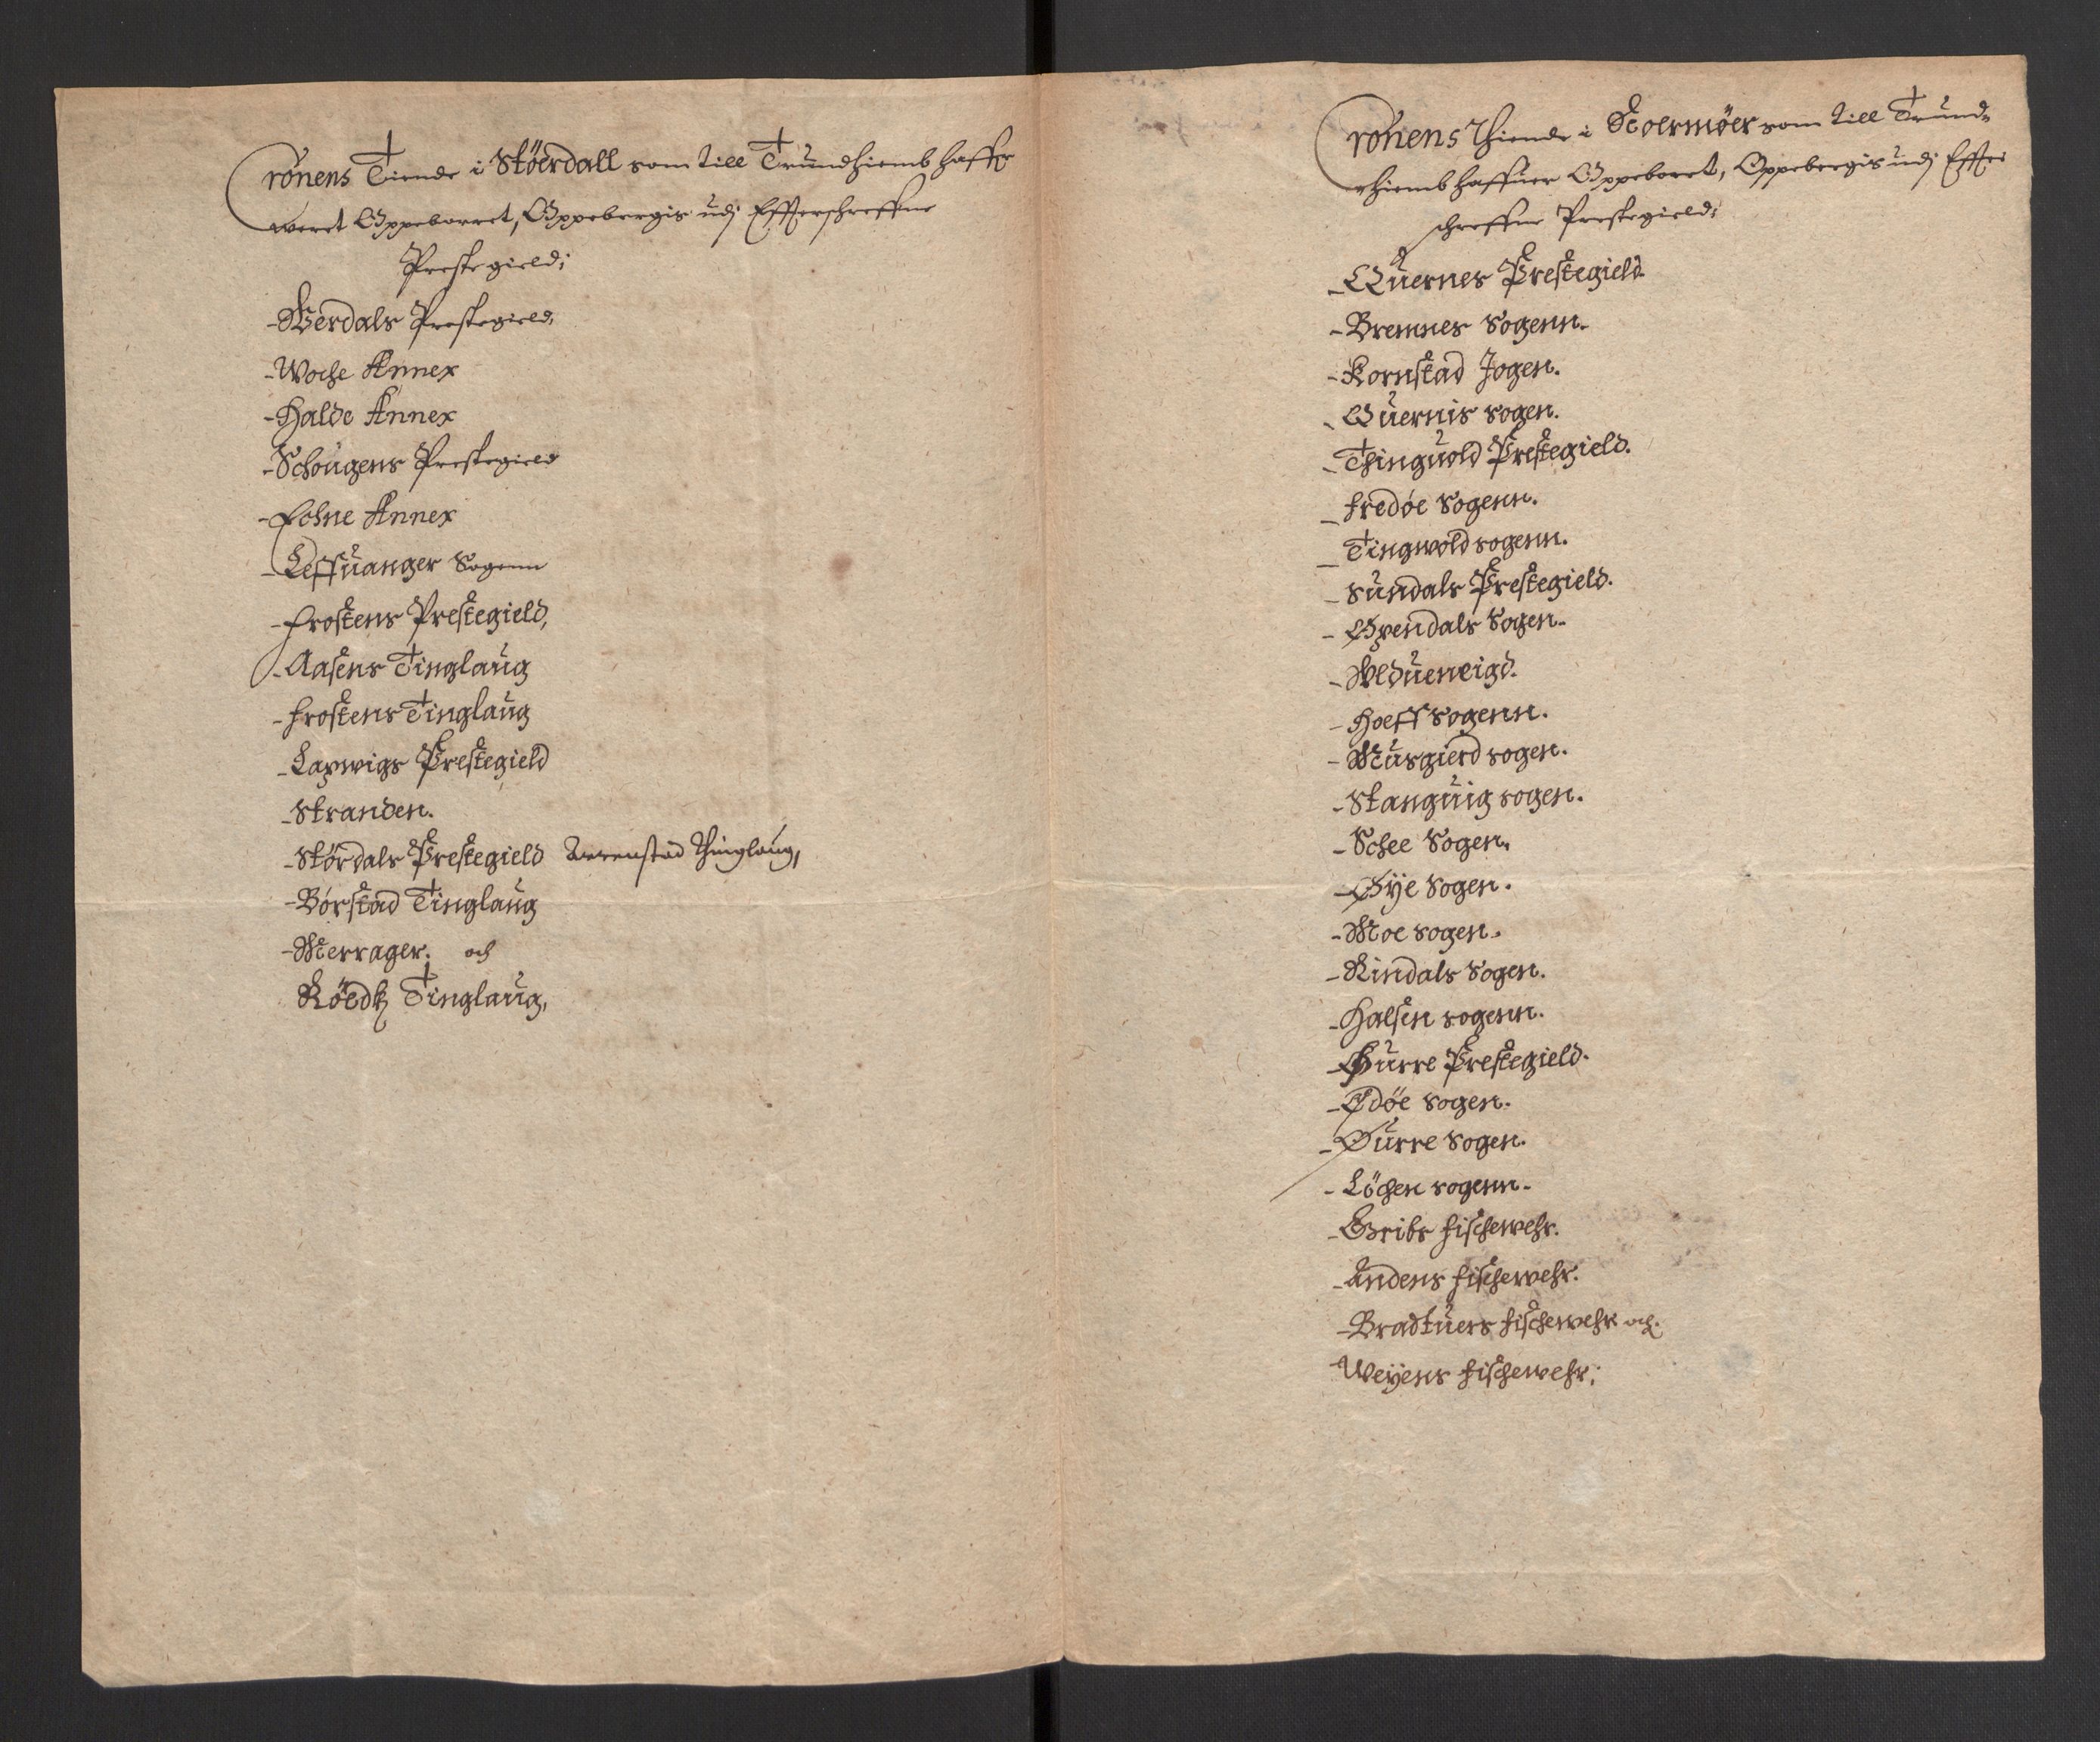 Cronens Tiende i Stördall som till Trundhiemb haffr
weret Oppeborret, Oppebergis udj Effterschreffne
Prestegield;
-Werdals Prestegield,
-Woche Annex
-Halde Annex
-Schougens Prestegield
-Echne Annex
-Leffuanger Sogenn
-Frostens Prestegield,
-Aasens Tinglaug
-Frostens Tinglaug
-Laxwigs Prestegield
-Stranden.
-Stördals Prestegield Werenstad Thinglaug,
-Börstad Tinglaug
-Merrager. och
Röedtz Tinglaug,
Cronens Thiende i Noermöer som till Trund-
hiemb haffuer Oppeboret, Oppebergis udj Effter
schreffne Prestegield;
-Quernes Prestegield.
-Bremnes Sogenn.
-Kornstad Sogen.
-Quernis sogen.
-Thinguold Prestegield.
-Fredöe Sogenn.
-Tingwold sogenn.
-Sundals Prestegield.
-Øxendals Sogen.
-Uldueneigd.
-Hoeff sogenn.
-Nusgierd sogen.
-Stanguig sogen.
-Schee Sogen.
-Øye Sogen.
-Moe sogen.
-Rindals Sogen.
-Halsen sogenn.
-Øurre Prestegield.
-Edöe Sogen.
-Øurre Sogen.
-Löchen sogenn.
-Gribs fischewehr.
-Andens fischewehr.
-Bradtuers fischewehr och.
Weyens fischewehr;